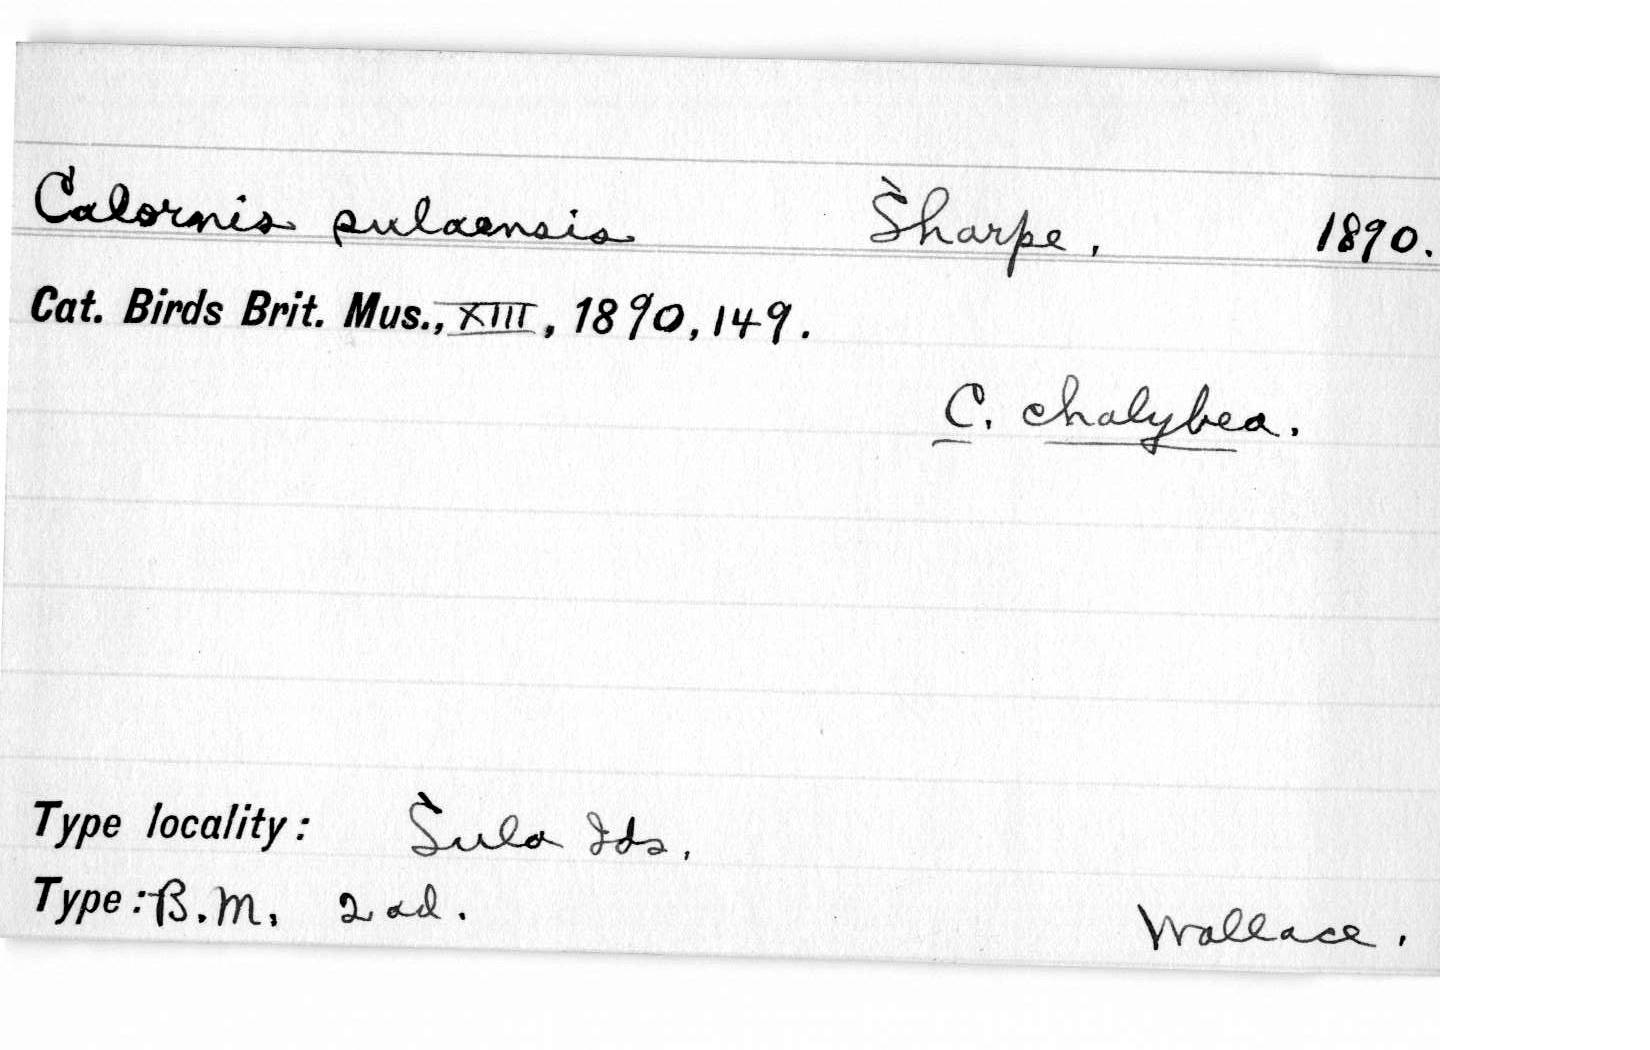 Calornis sulaensis Sharpe, 1890.
Cat. Birds Brit. Mus., XIII, 1890, 149.
C. chalybea.
Type locality: Sula Ids,
Type: B.M. 2 ad. Wallace.